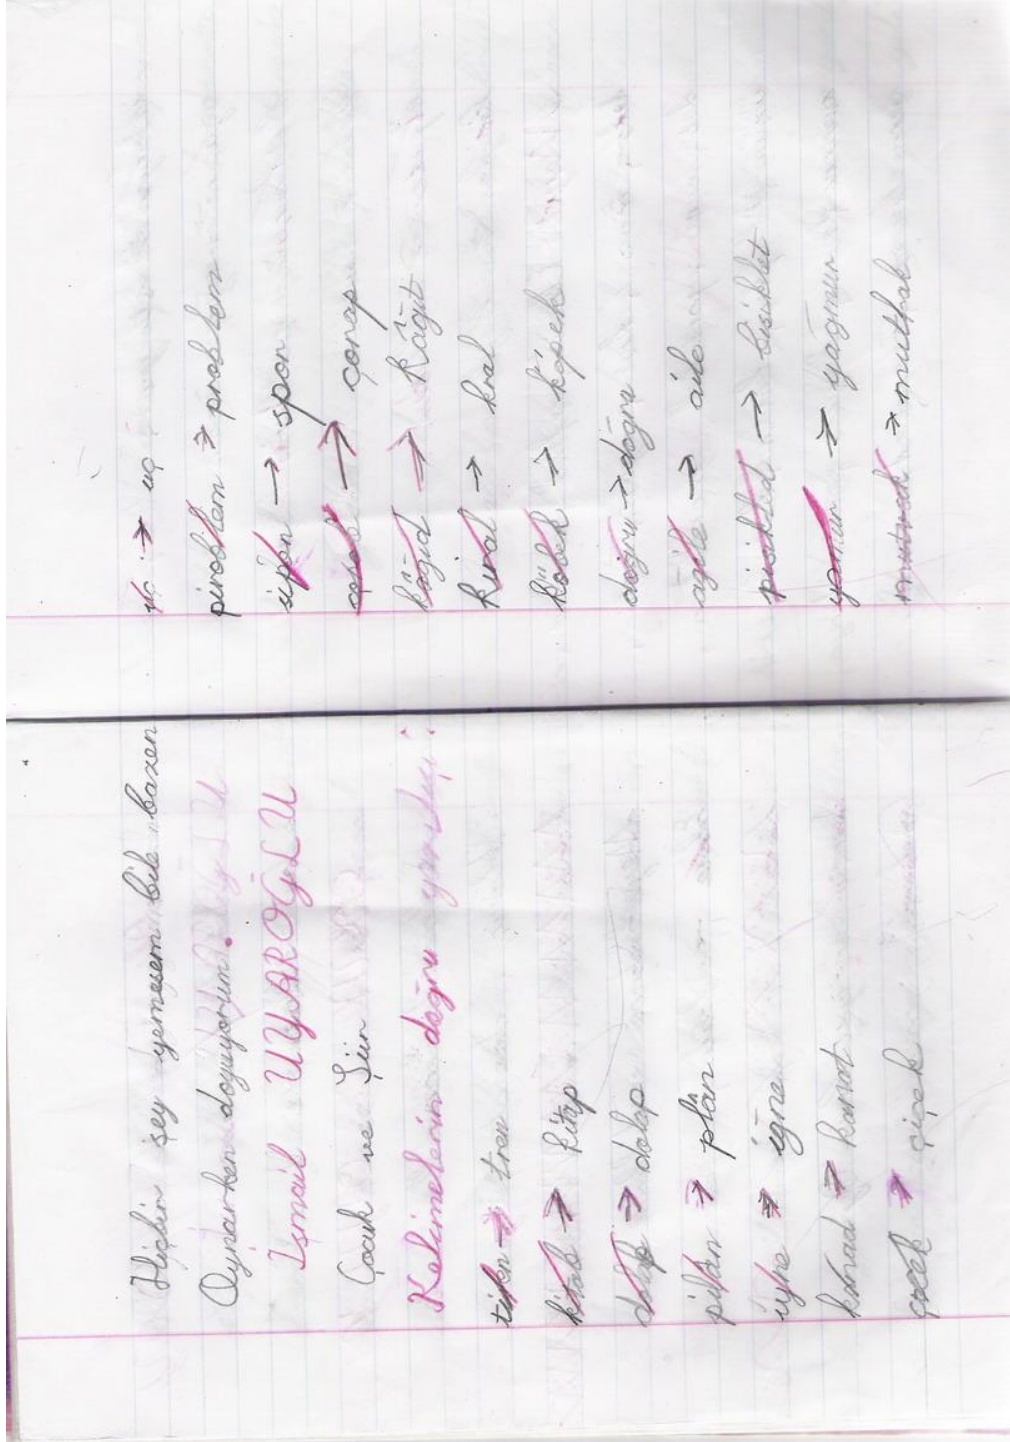 Hiçbir şey yemesem bile bazen
Oynarken doyuyorum.
İsmail UYAROĞLU
Çocuk ve Şiir
Kelimelerin doğru yazılışı:
tiren → tren
kitab → kitap
dolab → dolap
pilân → plân
iyne → iğne
kanad → kanat
çicek → çiçek
uc → uç
piroblem → problem
sipor → spor
çorab → çorap
kâğıd → kâğıt
kıral → kral
köbek → köpek
doğru → doğru
ağile → aile
pisiklet → bisiklet
yamur → yağmur
mutvak → mutfak